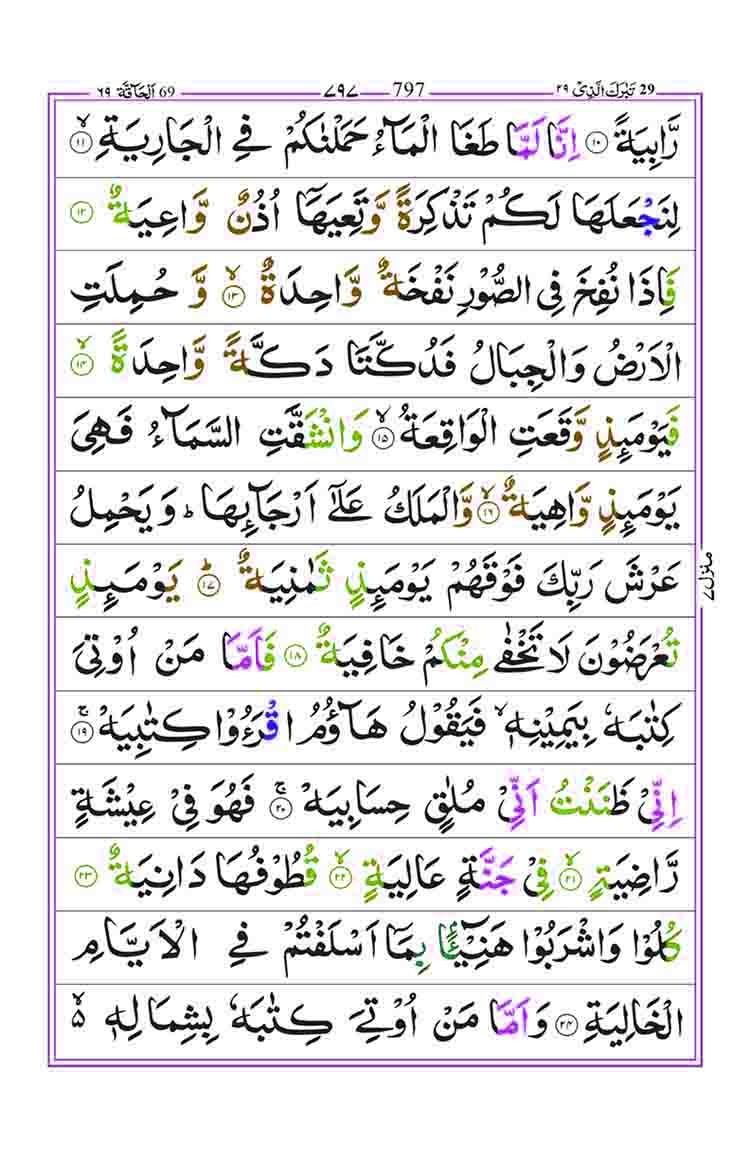 29 تَبٰرَكَ الَّذِیْ ۲۹ 797 ۷۹۷ 69 اَلْحَآقَّة ۶۹
رَّابِیَةً ۱۰ اِنَّا لَمَّا طَغَا الْمَآءُ حَمَلْنٰكُمْ فِی الْجَارِیَةِۙ ۱۱
لِنَجْعَلَهَا لَكُمْ تَذْكِرَةً وَّتَعِیَهَاۤ اُذُنٌ وَّاعِیَةٌ ۱۲
فَاِذَا نُفِخَ فِی الصُّوْرِ نَفْخَةٌ وَّاحِدَةٌۙ ۱۳ وَّ حُمِلَتِ
الْاَرْضُ وَالْجِبَالُ فَدُكَّتَا دَكَّةً وَّاحِدَةًۙ ۱۴
فَیَوْمَىِٕذٍ وَّقَعَتِ الْوَاقِعَةُۙ ۱۵ وَانْشَقَّتِ السَّمَآءُ فَهِیَ
یَوْمَىِٕذٍ وَّاهِیَةٌۙ ۱۶ وَّالْمَلَكُ عَلٰۤی اَرْجَآىِٕهَاؕ وَیَحْمِلُ
عَرْشَ رَبِّكَ فَوْقَهُمْ یَوْمَىِٕذٍ ثَمٰنِیَةٌؕ ۱۷ یَوْمَىِٕذٍ
تُعْرَضُوْنَ لَا تَخْفٰی مِنْكُمْ خَافِیَةٌ ۱۸ فَاَمَّا مَنْ اُوْتِیَ
كِتٰبَهٗ بِیَمِیْنِهٖۙ فَیَقُوْلُ هَآؤُمُ اقْرَءُوْا كِتٰبِیَهْۚ ۱۹
اِنِّیْ ظَنَنْتُ اَنِّیْ مُلٰقٍ حِسَابِیَهْۚ ۲۰ فَهُوَ فِیْ عِیْشَةٍ
رَّاضِیَةٍۙ ۲۱ فِیْ جَنَّةٍ عَالِیَةٍۙ ۲۲ قُطُوْفُهَا دَانِیَةٌ ۲۳
كُلُوْا وَاشْرَبُوْا هَنِیْٓــٴًۢا بِمَاۤ اَسْلَفْتُمْ فِی الْاَیَّامِ
الْخَالِیَةِ ۲۴ وَاَمَّا مَنْ اُوْتِیَ كِتٰبَهٗ بِشِمَالِهٖ ۙ۵
منزل۷